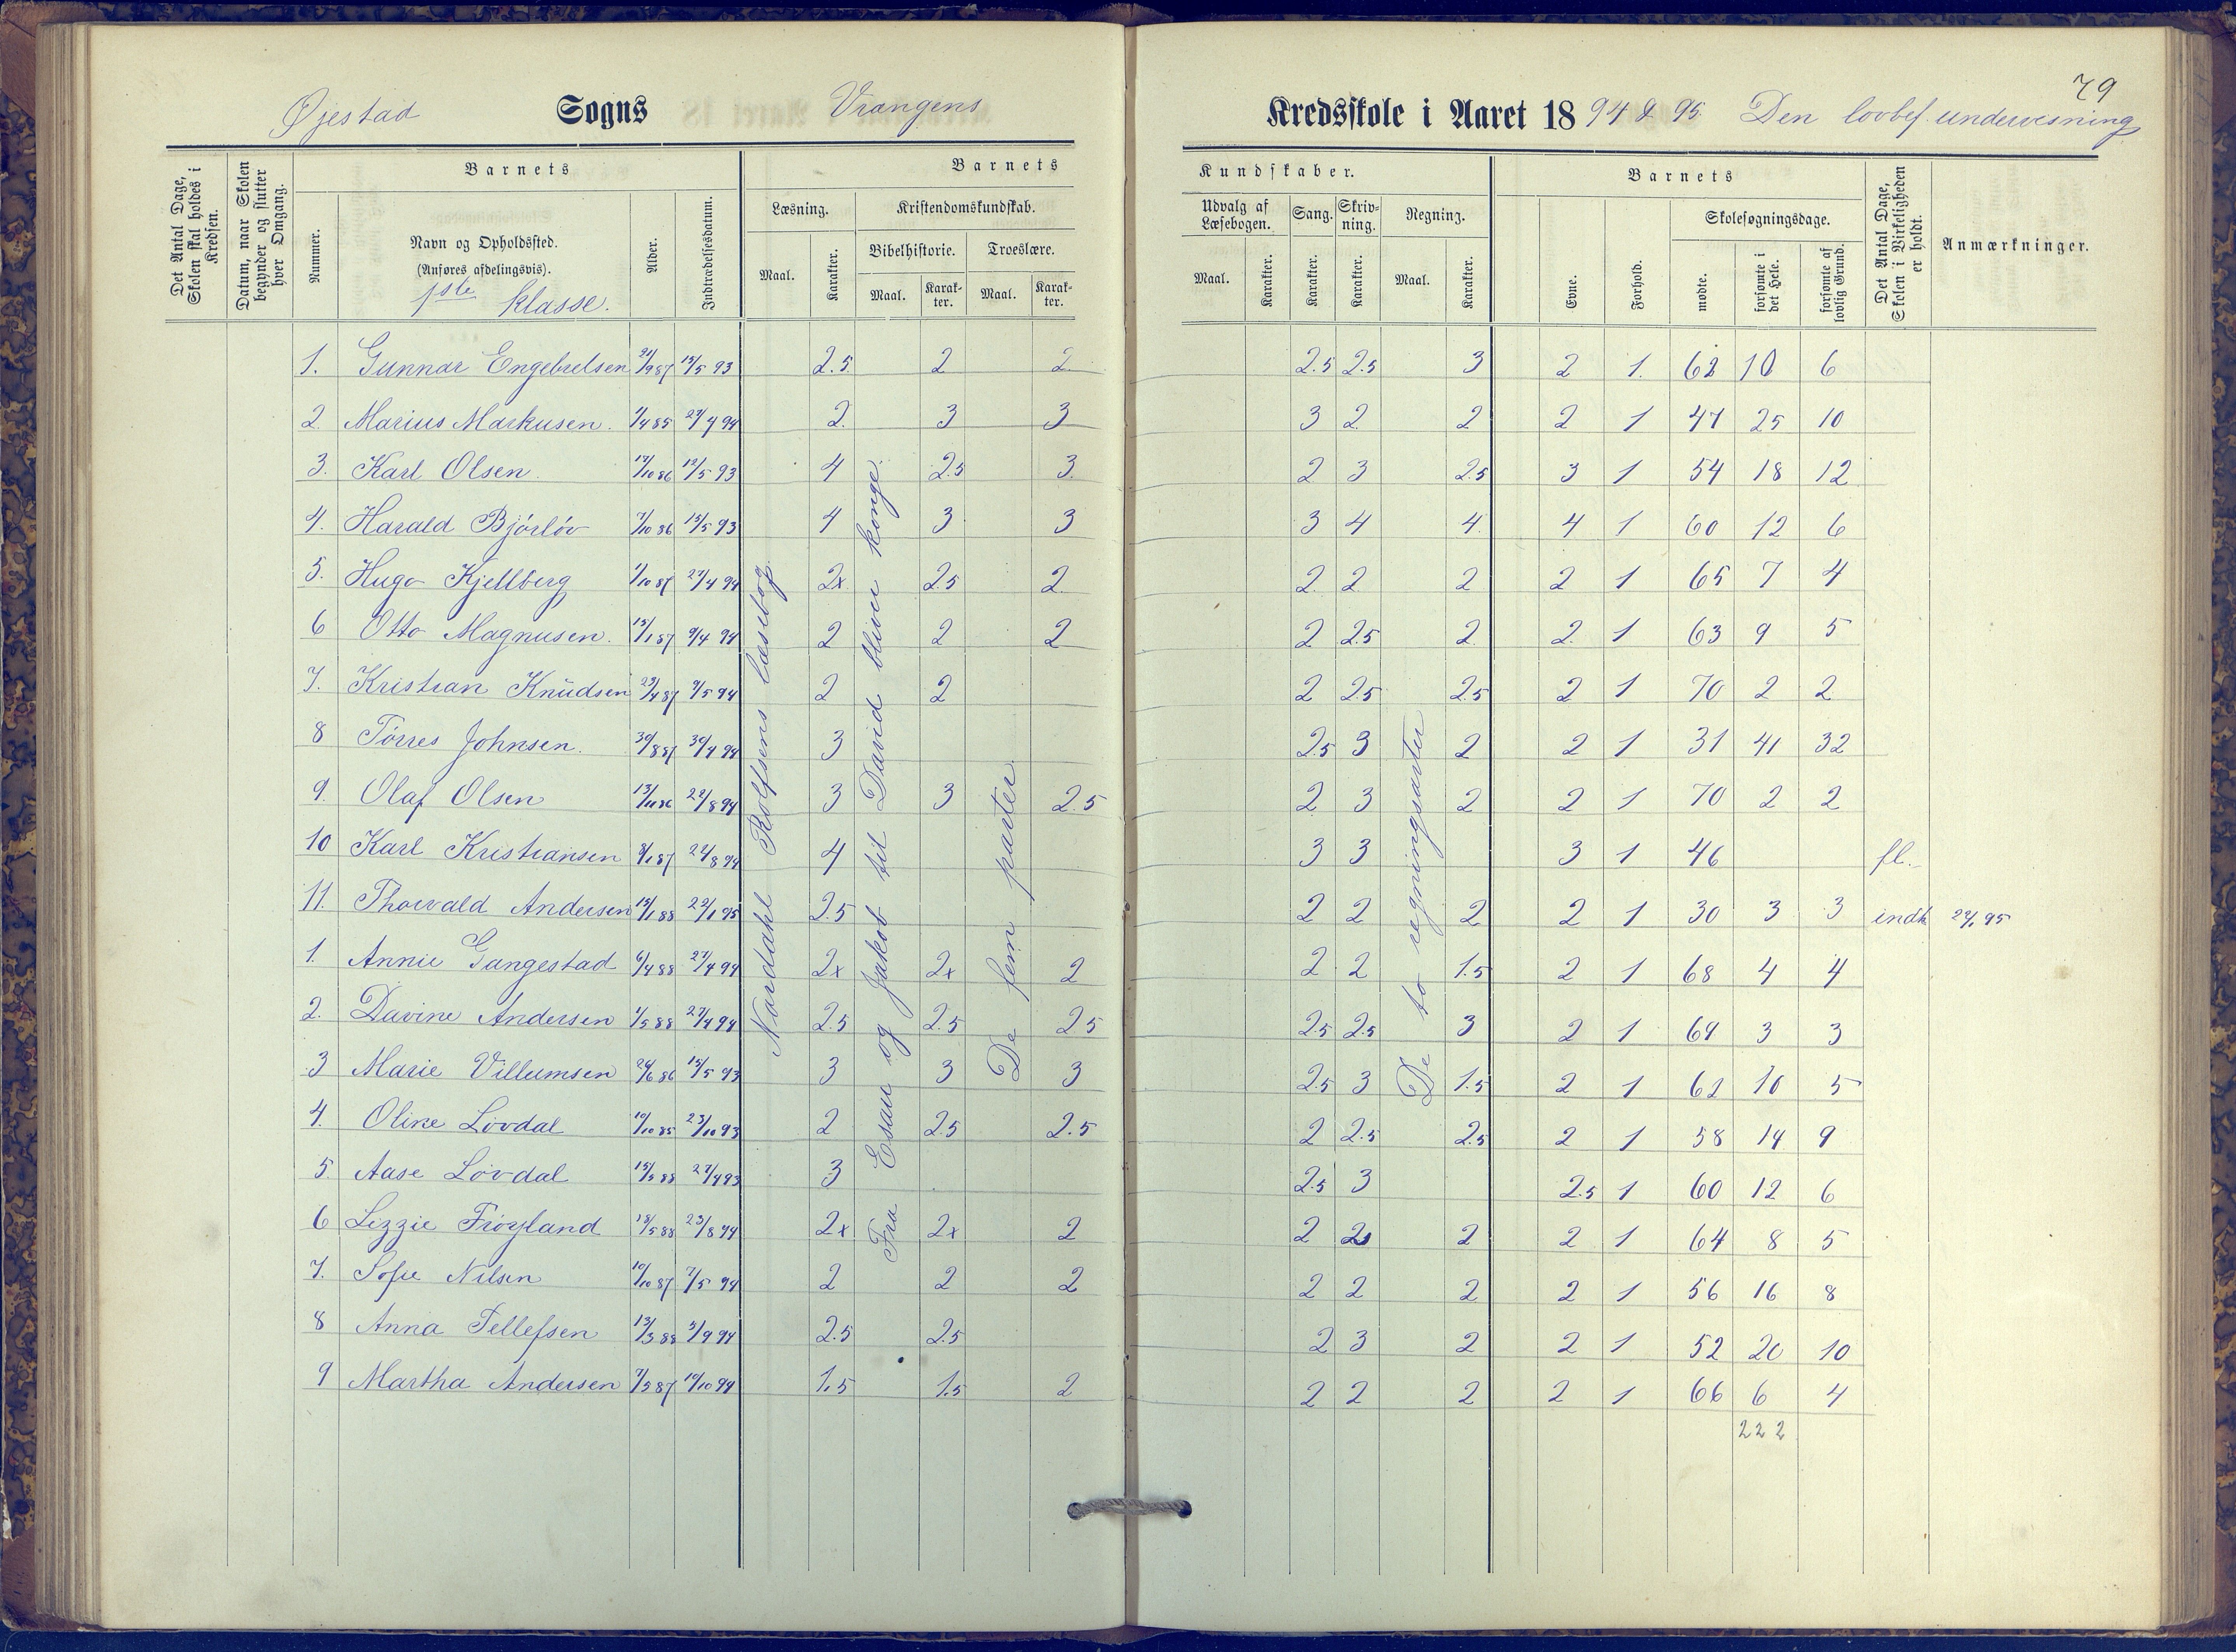 79
Øjestad Sogns Vrangens Kredsskole i Aaret 1894 & 95. Den lovbef. undervisning
Det Antal Dage, Skolen skal holdes i Kredsen.
Datum, naar Skolen begynder og slutter hver Omgang.
Barnets
Nummer.
Navn og Opholdssted.
(Anføres afdelingsvis).
1ste klasse.
Alder.
Indtrædelsesdatum.
Barnets Kundskaber.
Læsning. Kristendomskundskab.
Maal. Karakter.
Bibelhistorie. Troeslære.
Maal. Karakter. Maal. Karakter.
Udvalg af Læsebogen. Sang. Skrivning. Regning.
Maal. Karakter. Karakter. Karakter. Maal. Karakter.
Barnets
Evne. Forhold.
Skolesøgningsdage.
mødte. forsømte i det Hele. forsømte af lovlig Grund.
Det Antal Dage, Skolen i Virkeligheden er holdt.
Anmærkninger.
Nordahl Rolfsens læsebog
Fra Esau og Jakob til David bliver konge.
De fem parter
De to regningsarter
1. Gunnar Engebretsen 21/9 87 15/5 93 2.5 2 2. 2.5 2.5 3 2 1. 62 10 6
2. Marius Markusen. 1/4 85 27/4 94 2. 3 3 3 2 2 2 1 47 25 10
3. Karl Olsen. 14/10 86 15/5 93 4 2.5 3. 2 3 2.5 3 1 54 18 12
4. Harald Bjórlóv 7/10 86 15/5 93 4 3 3 3 4 4 4 1 60 12 6
5. Hugo Kjellberg 1/10 87 27/4 94 2x 2.5 2 2 2 2 2 1 65 7 4
6 Otto Magnusen. 15/1 87 9/4 94 2 2 2 2 2.5 2 2 1 63 9 5
7. Kristian Knudsen 23/4 87 7/5 94 2 2 2 2.5 2.5 2 1 70 2 2
8 Tórres Johnsen. 30/8 87 30/4 94 3 2.5 3 2 2 1 31 41 32
9. Olaf Olsen 13/11 86 22/8 94 3 3 2.5 2 3 2 2 1 70 2 2
10 Karl Kristiansen 8/1 87 22/8 94 4 3 3 3 1 46 fl.
11. Thorvald Andersen 15/1 88 22/1 95 2.5 2 2 2 2 1 30 3 3 indk 22/1 95
1. Annie Gangestad 6/4 88 27/4 94 2x 2x 2 2 2 1.5 2 1 68 4 4
2. Davine Andersen 1/5 88 27/4 94 2.5 2.5 2.5 2.5 2.5 3 2 1 69 3 3
3 Marie Villumsen 26/6 86 15/5 93 3 3 3 2.5 3 1.5 2 1 62 10 5
4. Oline Lóvdal 10/10 85 23/10 93 2 2.5 2.5 2 2.5 2.5 2 1 58 14 9
5. Aase Lóvdal 15/5 88 27/4 93 3 2.5 3 2.5 1 60 12 6
6 Lizzie Fróyland 18/5 88 23/8 94 2x 2x 2 2 2 2 2 1 64 8 5
7. Sofie Nilsen 10/10 87 7/5 94 2 2 2 2 2 2 2 1 56 16 8
8 Anna Tellefsen 13/3 88 3/9 94 2.5 2.5 2 3 2 2 1 52 20 10
9 Martha Andersen 7/5 87 10/10 94 1.5 1.5 2 2 2 2 2 1 66 6 4
222